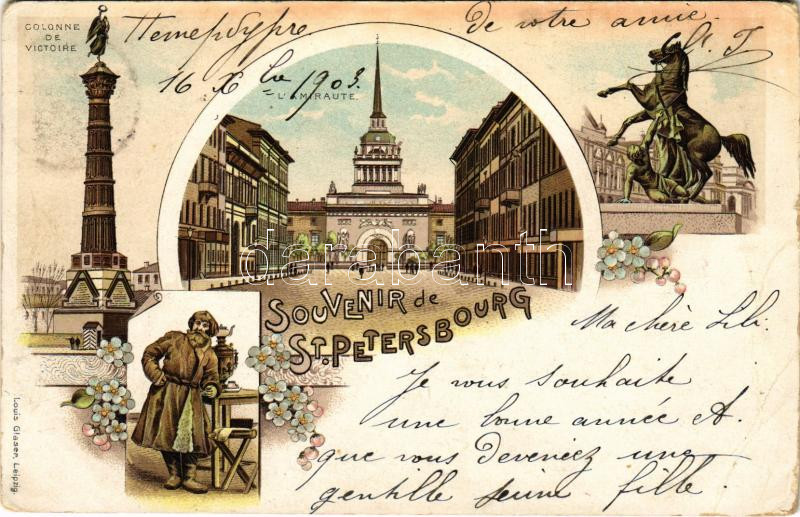 COLONNE
DE
VICTOIRE
Петербургъ.
16 X 1903.
De votre amie
L'AMIRAUTE.
darabanth
SOUVENIR de
ST. PETERSBOURG
Ma chère Lili.
Je vous souhaite
une bonne année et
que vous deveniez une
gentille jeune fille.
Louis Glaser, Leipzig